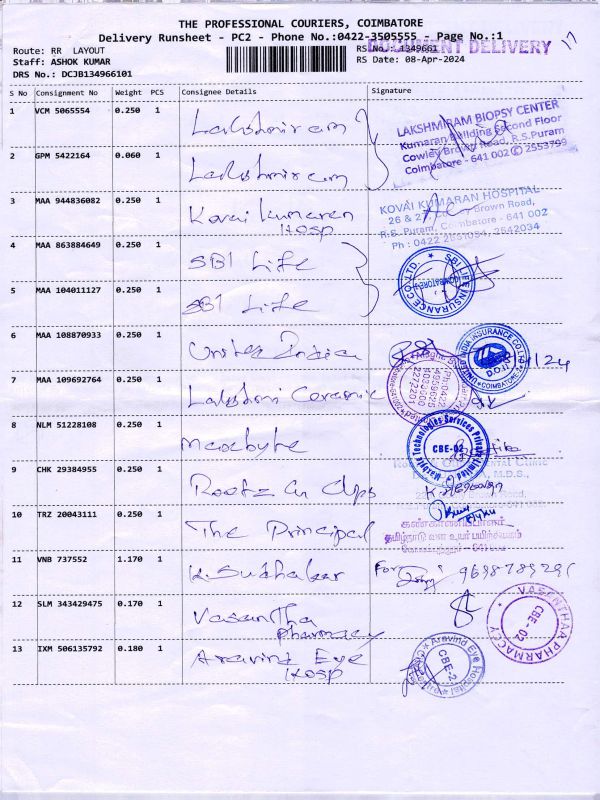 THE PROFESSIONAL COURIERS, COIMBATORE
Delivery Runsheet - PC2 - Phone No.:0422-3505555 - Page No.:1
Route: RR LAYOUT
RS No.: 1349661
DOCUMENT DELIVERY
Staff: ASHOK KUMAR
RS Date: 08-Apr-2024
DRS No.: DCJB134966101
S No Consignment No Weight PCS Consignee Details Signature
1 VCM 5065554 0.250 1 Lakshmiram
LAKSHMIRAM BIOPSY CENTER
Kumaran Building Second Floor
Cowley Brown Road, R.S.Puram
Coimbatore - 641 002 2553799
2 GPM 5422164 0.060 1 Lakshmiram
3 MAA 944836082 0.250 1 Kovai Kumaran
Hosp
KOVAI KUMARAN HOSPITAL
26 & 27, Cowley Brown Road,
R.S. Puram, Coimbatore - 641 002
Ph : 0422 2542034
4 MAA 863884649 0.250 1 SBI Life
SBI LIFE INSURANCE CO. LTD.
5 MAA 104011127 0.250 1 SBI Life
6 MAA 108870933 0.250 1 United India
UNITED INDIA INSURANCE CO. LTD.
D.O.II
COIMBATORE
7 MAA 109692764 0.250 1 Lakshmi Ceramic
8 NLM 51228108 0.250 1 Maczbyte
Maczbyte Technologies Services Private Limited
CBE-02
9 CHK 29384955 0.250 1 Rootz an Clips
Dental Clinic
M.D.S.,
10 TRZ 20043111 0.250 1 The Principal
கண்காணிப்பாளர்
தமிழ்நாடு வன உயர் பயிற்சியகம்
11 VNB 737552 1.170 1 K. Sudhakar
For 9698789291
12 SLM 343429475 0.170 1 Vasantha
Pharmacy
VASANTHAA PHARMACY
CBE - 02
13 IXM 506135792 0.180 1 Aravind Eye
Hosp
Aravind Eye Hospital
CBE-2